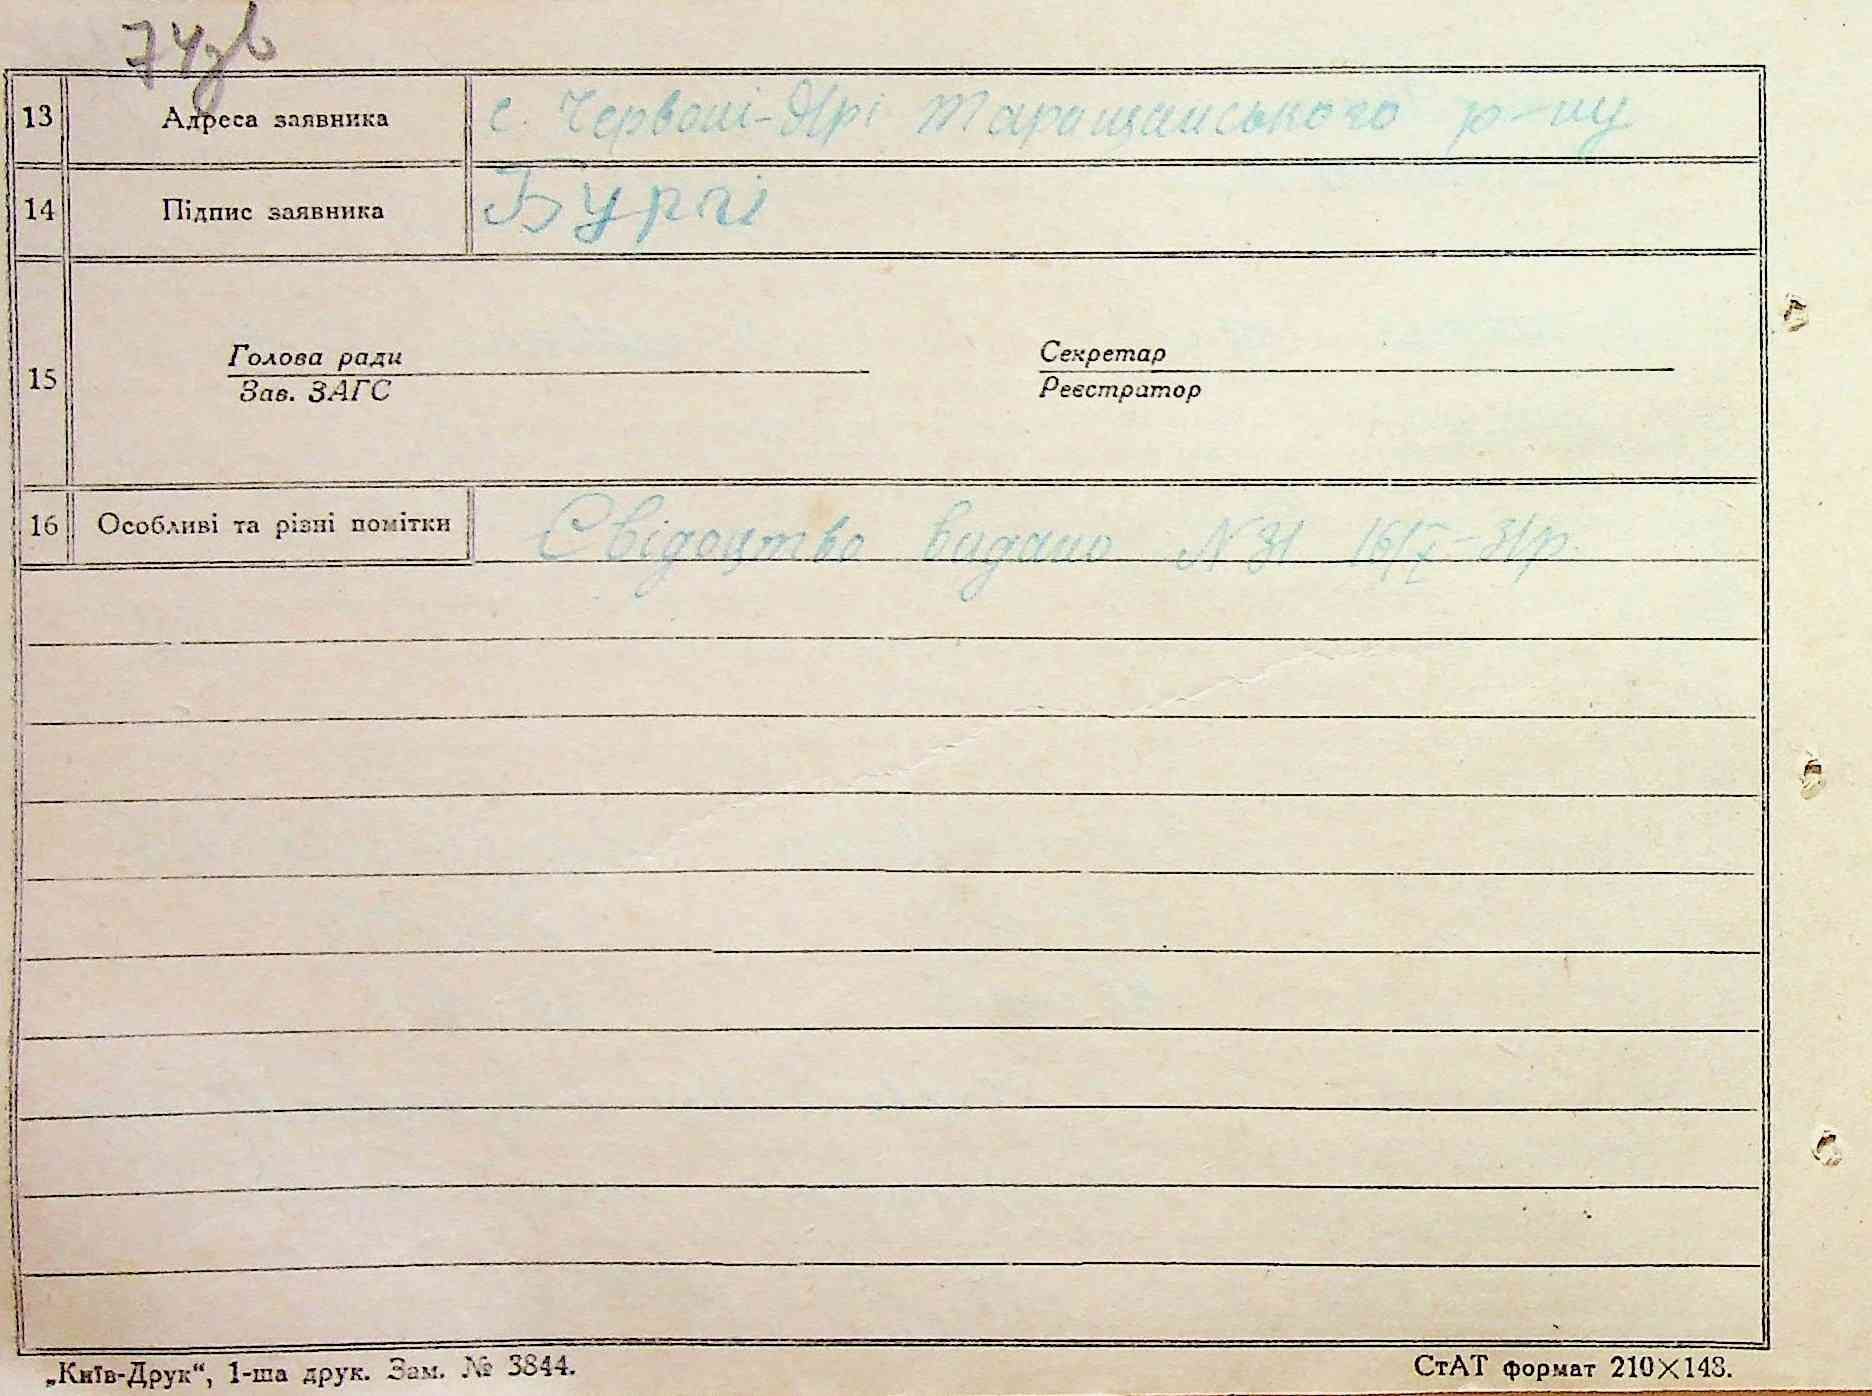 74зв
13 Адреса заявника с. Червоні-Ярі Таращанського р-ну
14 Підпис заявника Бургі
15 Голова ради Секретар
Зав. ЗАГС Реєстратор
16 Особливі та різні помітки Свідоцтво видано N 31 16/X-31р.
„Київ-Друк“, 1-ша друк. Зам. № 3844. СтАТ формат 210×148.